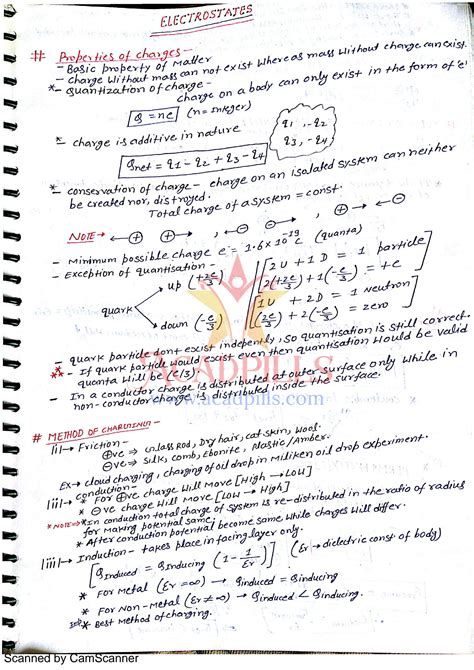 ELECTROSTATES
# Properties of charges -
- Basic property of Matter
- Charge Without mass can not exist Whereas mass Without charge can exist.
*- Quantization of charge - charge on a body can only exist in the form of 'e'
Q = ne (n = Integer)
q1, -q2
q3, -q4
*- charge is additive in nature
Qnet = q1 - q2 + q3 - q4
*- conservation of charge - charge on an isolated system can neither
be created nor, distroyed.
Total charge of a system = const.
NOTE → ← ⊕ ⊕ → , ← ⊖ ⊖ → , ⊕ → ← ⊖
- Minimum possible charge e⁻ = 1.6 x 10⁻¹⁹ C (quanta)
- Exception of quantisation -
quark
up (+2e/3)
down (-e/3)
2U + 1D = 1 particle
2(+2e/3) + 1(-e/3) = +e
1U + 2D = 1 neutron
(2e/3) + 2(-e/3) = zero
- quark particle dont exist indepently, so quantisation is still correct.
** - If quark particle would exist even then quantisation Would be valid
quanta Will be (e/3)
- In a conductor charge is distributed at outer surface only While in
non-conductor charge is distributed inside the surface.
ACADPILLS
www.acadpills.com
# METHOD OF CHARGING -
(i) → Friction -
⊕ve ⇒ Glass Rod, Dry hair, cat skin, Wool.
⊖ve ⇒ Silk, comb, Ebonite, Plastic/Amber.
Ex → cloud charging, charging of oil drop in Miliken oil drop experiment.
(ii) → conduction -
* For ⊕ve charge Will Move [High → Low]
* ⊖ve charge Will Move [Low → High]
*NOTE ⇒ * In conduction total charge of system is re-distributed in the ratio of radius
for Making potential same.
* After conduction potential become same While charges Will differ.
(iii) → Induction - takes place in facing layer only.
Q induced = Q inducing (1 - 1/εr) (εr → dielectric const of body)
* For Metal (εr = ∞) → Q induced = Q inducing
* For Non-Metal (εr ≠ ∞) → Q induced < Q inducing
* Best Method of charging.
Scanned by CamScanner